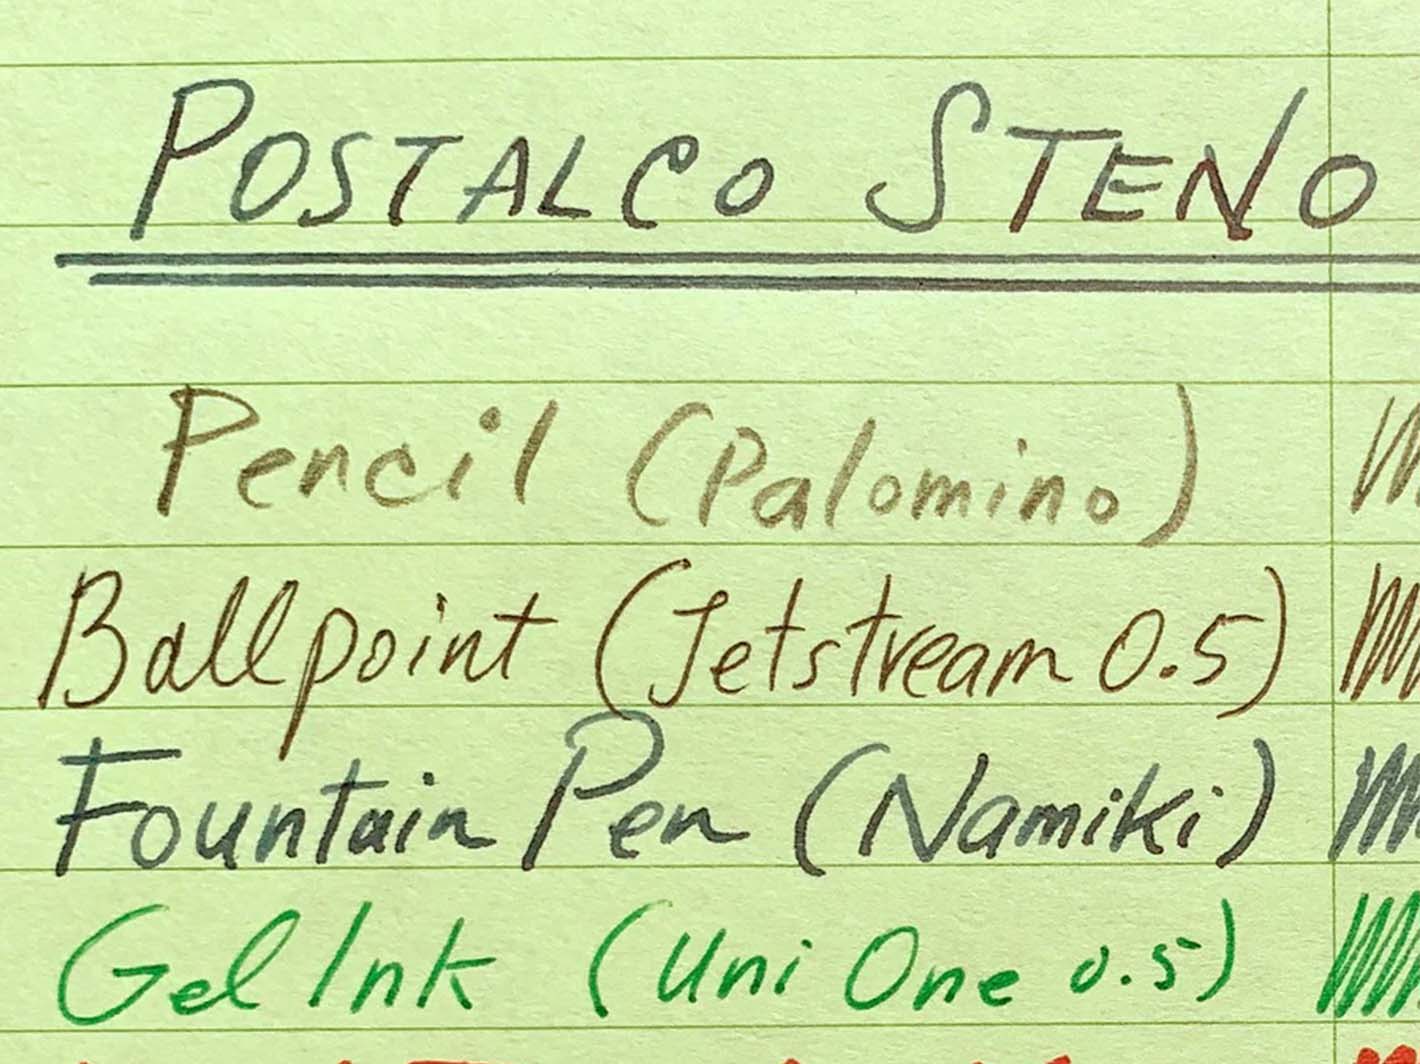 POSTALCO STENO
Pencil (Palomino)
Ballpoint (Jetstream 0.5)
Fountain Pen (Namiki)
Gel Ink (Uni One 0.5)